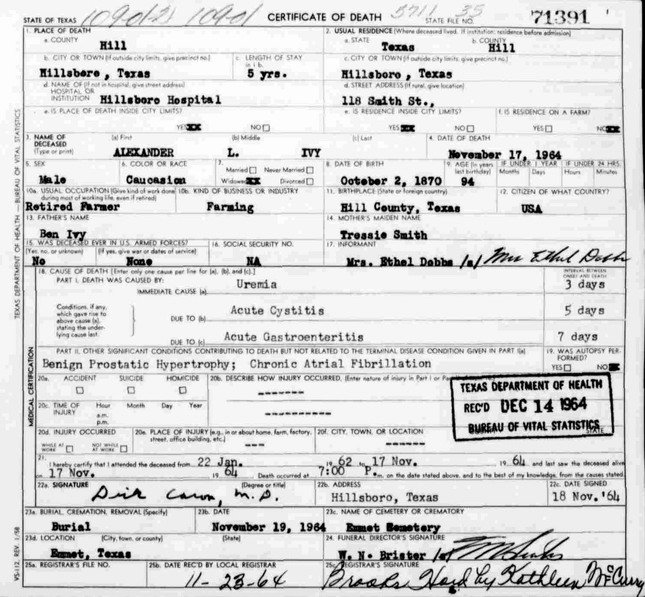 109-01-21 109-01 CERTIFICATE OF DEATH 5711 35
STATE OF TEXAS STATE FILE NO. 71391
1. PLACE OF DEATH 2. USUAL RESIDENCE (Where deceased lived. If institution: residence before admission)
a. COUNTY Hill a. STATE Texas b. COUNTY Hill
b. CITY OR TOWN (If outside city limits, give precinct no.) c. LENGTH OF STAY c. CITY OR TOWN (If outside city limits, give precinct no.)
Hillsboro, Texas 5 yrs. Hillsboro, Texas
d. NAME OF (If not in hospital, give street address) d. STREET ADDRESS (If rural, give location)
HOSPITAL OR
INSTITUTION Hillsboro Hospital 118 Smith St.,
e. IS PLACE OF DEATH INSIDE CITY LIMITS? e. IS RESIDENCE INSIDE CITY LIMITS? f. IS RESIDENCE ON A FARM?
YES XX NO YES XX NO YES NO XX
3. NAME OF DECEASED (a) First (b) Middle (c) Last 4. DATE OF DEATH
(Type or print) ALEXANDER L. IVY November 17, 1964
5. SEX 6. COLOR OR RACE 7. Married Never Married 8. DATE OF BIRTH 9. AGE (In years last birthday) IF UNDER 1 YEAR IF UNDER 24 HRS.
Months Days Hours Minutes
Male Caucasion Widowed XX Divorced October 2, 1870 94
10a. USUAL OCCUPATION (Give kind of work done during most of working life, even if retired) 10b. KIND OF BUSINESS OR INDUSTRY 11. BIRTHPLACE (State or foreign country) 12. CITIZEN OF WHAT COUNTRY?
Retired Farmer Farming Hill County, Texas USA
13. FATHER'S NAME 14. MOTHER'S MAIDEN NAME
Ben Ivy Tressie Smith
15. WAS DECEASED EVER IN U.S. ARMED FORCES? 16. SOCIAL SECURITY NO. 17. INFORMANT
(Yes, no, or unknown) (If yes, give war or dates of service)
No None NA Mrs. Ethel Dobbs /s/ Mrs Ethel Dobbs
18. CAUSE OF DEATH [Enter only one cause per line for (a), (b), and (c).] INTERVAL BETWEEN ONSET AND DEATH
PART I. DEATH WAS CAUSED BY:
IMMEDIATE CAUSE (a) Uremia 3 days
Conditions, if any, which gave rise to above cause (a), stating the underlying cause last.
DUE TO (b) Acute Cystitis 5 days
DUE TO (c) Acute Gastroenteritis 7 days
PART II. OTHER SIGNIFICANT CONDITIONS CONTRIBUTING TO DEATH BUT NOT RELATED TO THE TERMINAL DISEASE CONDITION GIVEN IN PART I(a) 19. WAS AUTOPSY PERFORMED?
Benign Prostatic Hypertrophy; Chronic Atrial Fibrillation YES NO
20a. ACCIDENT SUICIDE HOMICIDE 20b. DESCRIBE HOW INJURY OCCURRED. (Enter nature of injury in Part I or Par
-------
20c. TIME OF INJURY Hour Month Day Year
a.m.
p.m.
-------
TEXAS DEPARTMENT OF HEALTH
REC'D DEC 14 1964
BUREAU OF VITAL STATISTICS
20d. INJURY OCCURRED 20e. PLACE OF INJURY (e.g., in or about home, farm, factory, street, office building, etc.) 20f. CITY, TOWN, OR LOCATION STATE
WHILE AT WORK NOT WHILE AT WORK ---- ---
21. I hereby certify that I attended the deceased from 22 Jan. 1962 to 17 Nov. 1964 and last saw the deceased alive
on 17 Nov. 1964 Death occurred at 7:00 P.m. on the date stated above, and to the best of my knowledge, from the causes stated.
22a. SIGNATURE (Degree or title) 22b. ADDRESS 22c. DATE SIGNED
M.D. Hillsboro, Texas 18 Nov.'64
23a. BURIAL, CREMATION, REMOVAL (Specify) 23b. DATE 23c. NAME OF CEMETERY OR CREMATORY
Burial November 19, 1964 Emmet Cemetery
23d. LOCATION (City, town, or county) (State) 24. FUNERAL DIRECTOR'S SIGNATURE
Emmet, Texas W. N. Brister /s/
25a. REGISTRAR'S FILE NO. 25b. DATE REC'D BY LOCAL REGISTRAR 25c. REGISTRAR'S SIGNATURE
11-23-64 Brooks Hord by Kathleen McCurry
TEXAS DEPARTMENT OF HEALTH—BUREAU OF VITAL STATISTICS
MEDICAL CERTIFICATION
VS-112 REV. 1/58